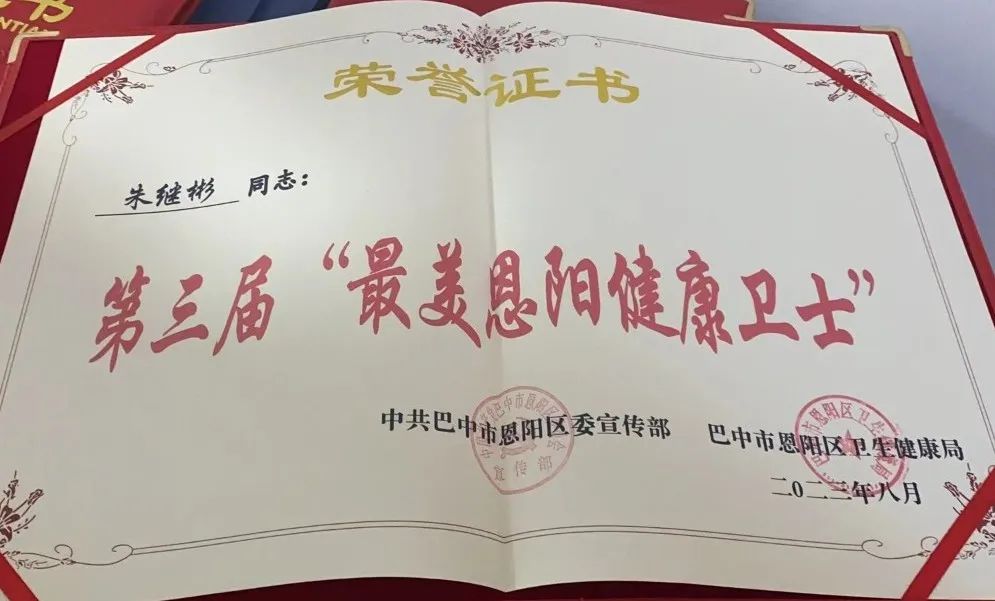 荣誉证书
朱继彬 同志：
第三届“最美恩阳健康卫士”
中共巴中市恩阳区委宣传部 巴中市恩阳区卫生健康局
二〇二三年八月
宣传部